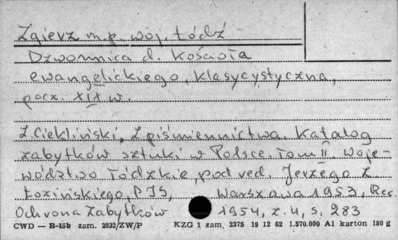 Zgierz m.p. woj. Łódź
Dzwonnica d. Kościoła
ewangelickiego, klasycystyczna,
pocz. XIX w.
Z. Ciekliński, Z piśmiennictwa. Katalog
zabytków sztuki w Polsce. Tom II woje-
wództwo łódzkie, pod red. Jerzego Z.
Łozińskiego, PIS, Warszawa 1953, Rec.
Ochrona Zabytków 1954, z. 4, s. 283
CWD — B-15b zam. 2833/ZW/P KZG 1 zam. 2375 19 12 62 1.570.000 A1 karton 180 g